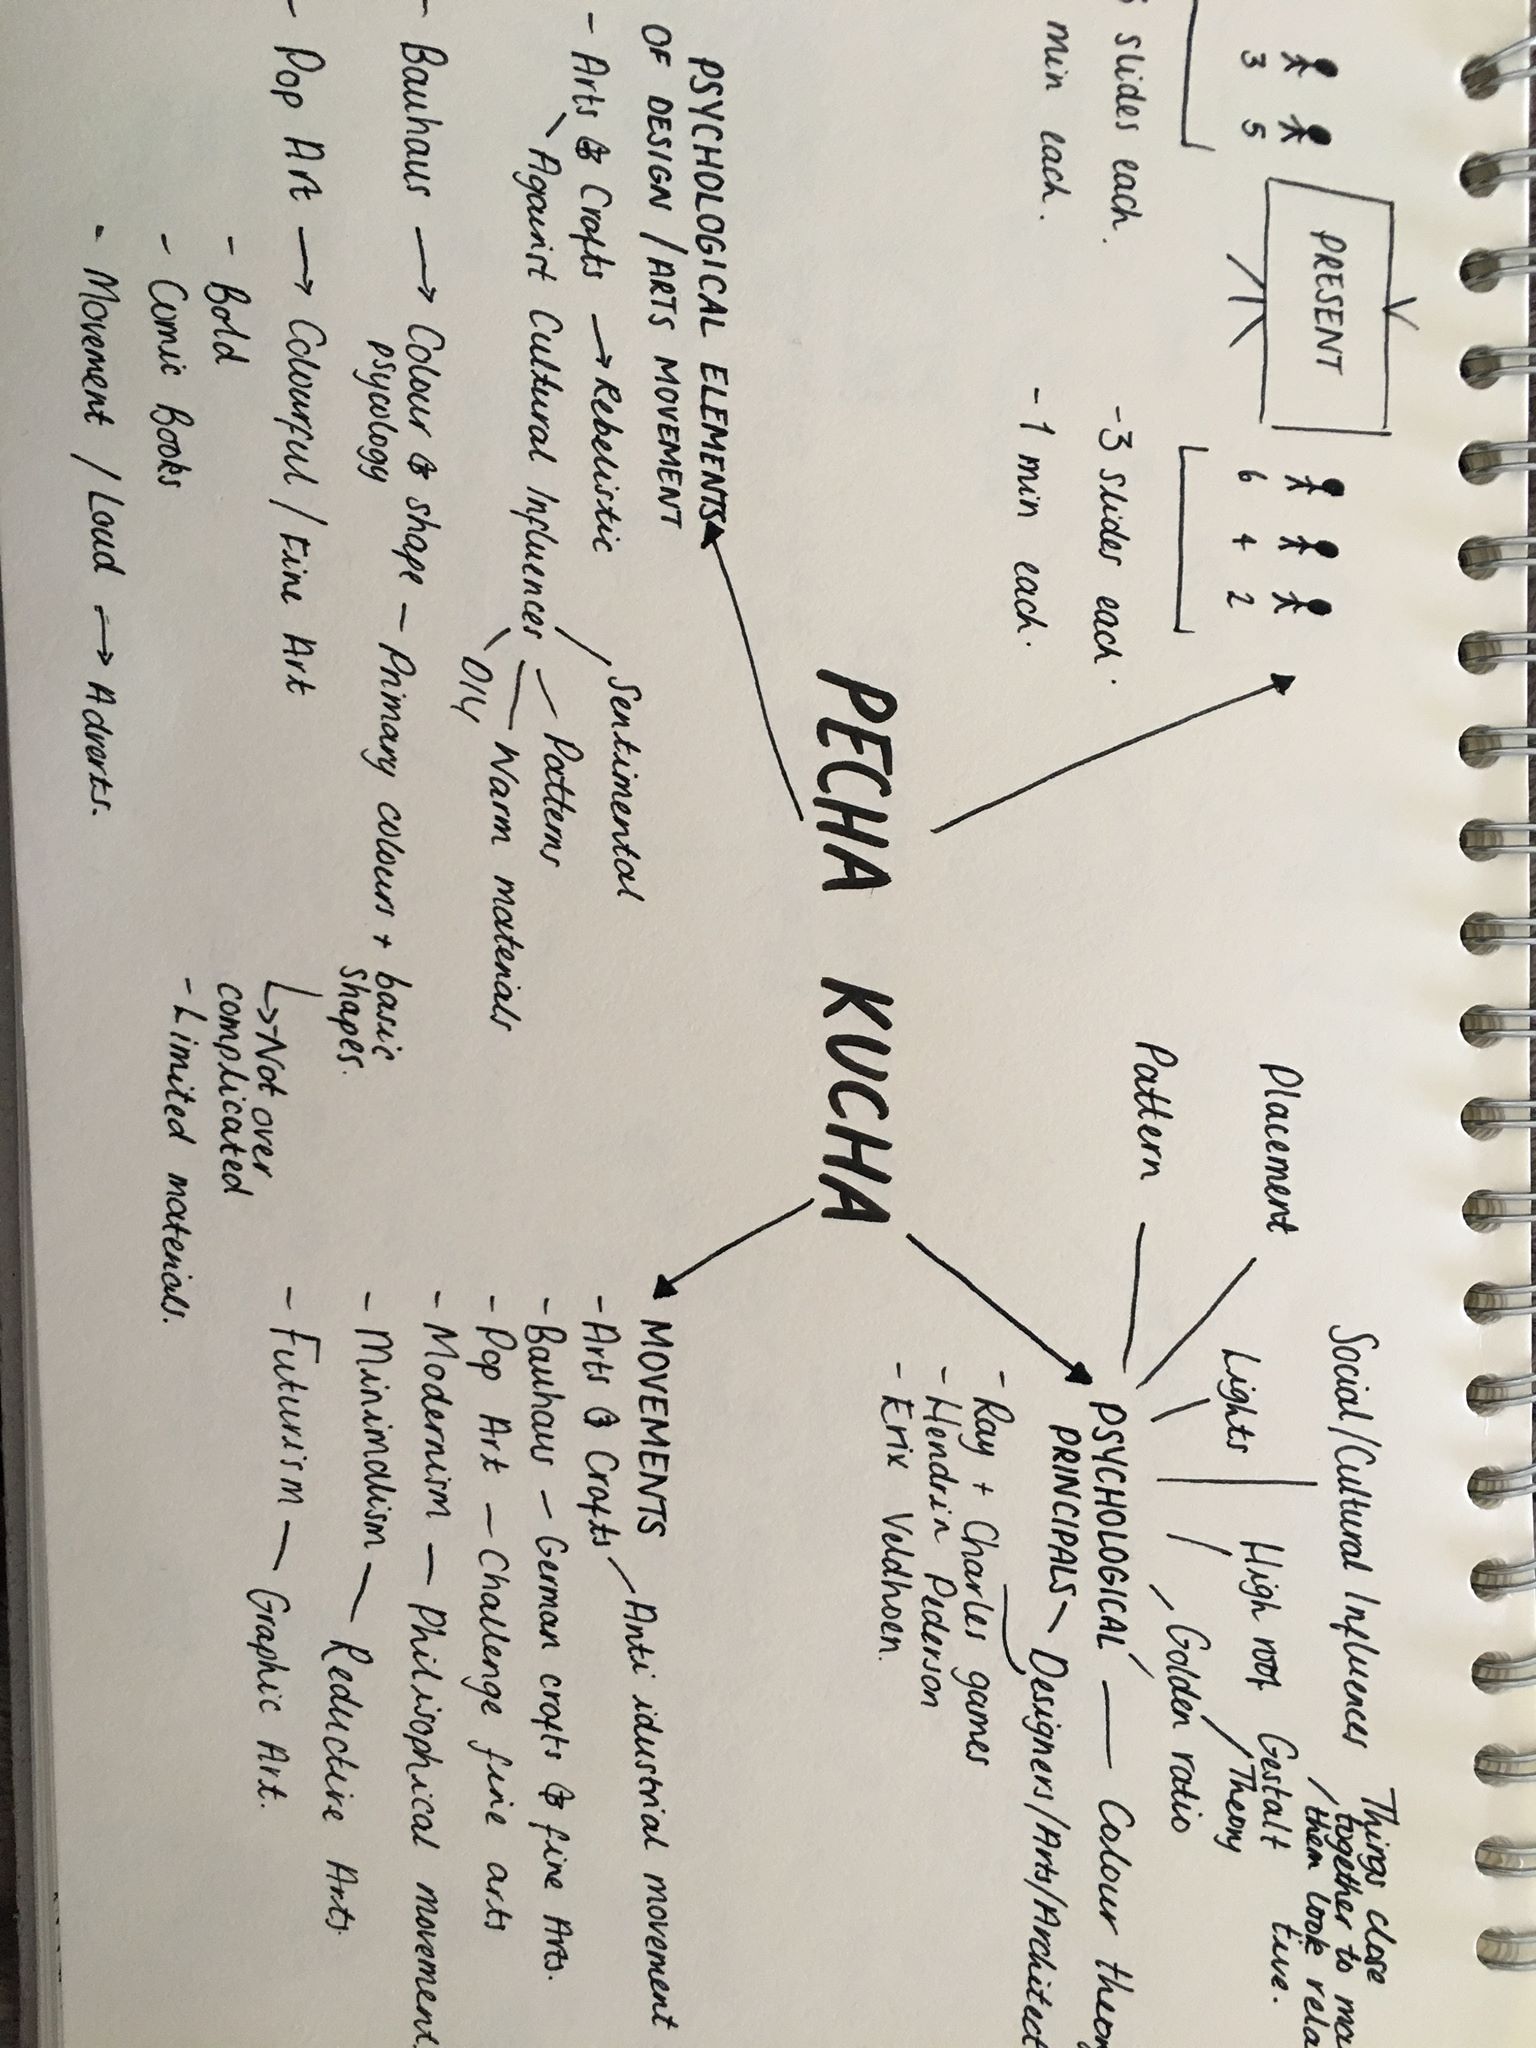 PRESENT
3 5
6 4 2
slides each.
min each.
- 3 slides each.
- 1 min each.
PECHA KUCHA
PSYCHOLOGICAL ELEMENTS
OF DESIGN / ARTS MOVEMENT
- Arts & Crafts → Rebelistic
Against Cultural Influences
Sentimental
Patterns
Warm materials
- Bauhaus → Colour & shape - Primary colours + basic
psycology
shapes.
↳ Not over
complicated
- Limited materials.
- Pop Art → Colourful / Fine Art
- Bold
- Comic Books
- Movement / Loud → Adverts.
Placement
Pattern
Lights
Social/Cultural Influences
High roof
Gestalt
Theory
Things close
together to
them look rela
tive.
Golden ratio
PSYCHOLOGICAL — Colour theory
PRINCIPALS - Designers/Arts/Architect
- Ray + Charles games
- Hendrin Pederson
- Erix Veldhoen.
MOVEMENTS
- Arts & Crafts - Anti idustrial movement
- Bauhaus - German crafts & fine Arts.
- Pop Art - Challenge fine arts
- Modernism - Philisophical movement.
- Minimalism - Reductive Arts.
- Futurism - Graphic Art.